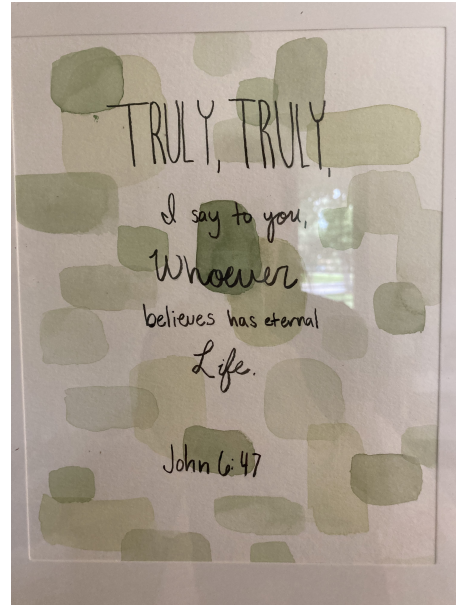 TRULY, TRULY,
I say to you,
Whoever
believes has eternal
Life.
John 6:47